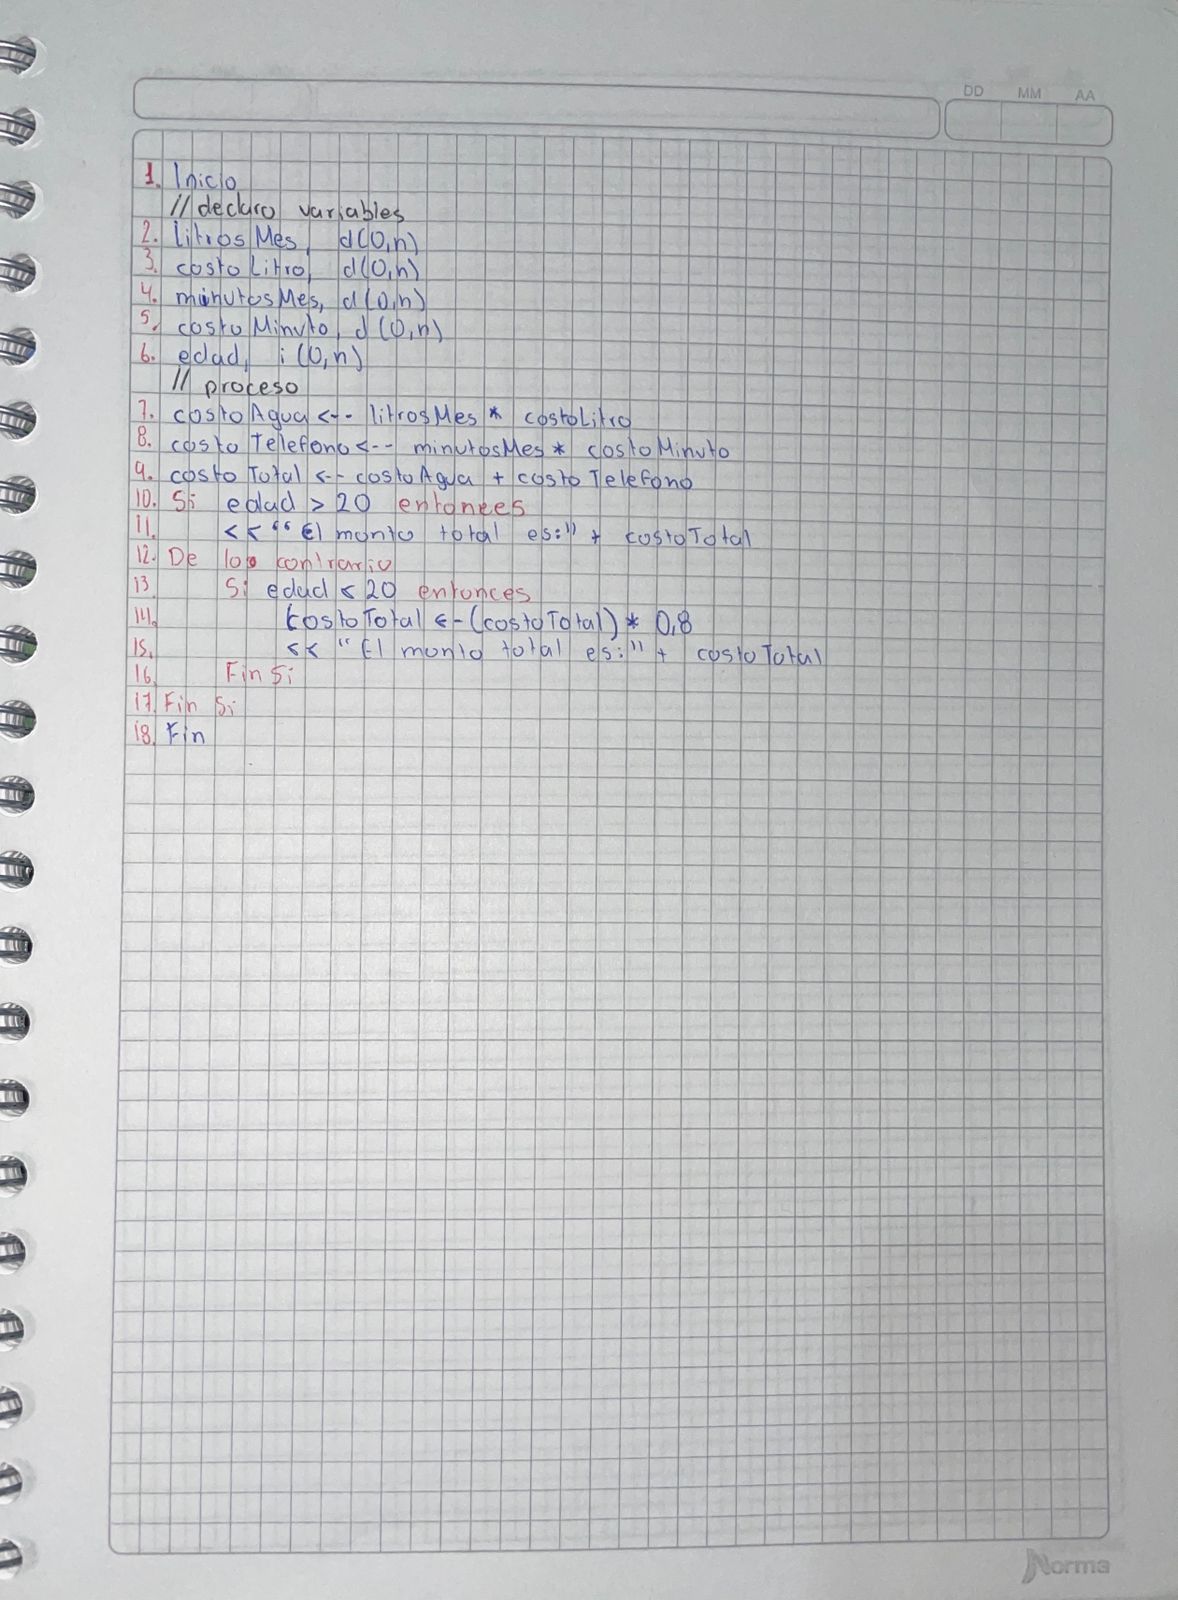 DD MM AA
1. Inicio
// declaro variables
2. litrosMes, d(0,n)
3. costoLitro, d(0,n)
4. minutosMes, d(0,n)
5. costoMinuto, d(0,n)
6. edad, i(0,n)
// proceso
7. costoAgua <-- litrosMes * costoLitro
8. costoTelefono <-- minutosMes * costoMinuto
9. costoTotal <-- costoAgua + costoTelefono
10. Si edad > 20 entonces
11. << "El monto total es:" + costoTotal
12. De lo contrario
13. Si edad < 20 entonces
14. costoTotal <- (costoTotal) * 0,8
15. << "El monto total es:" + costoTotal
16. Fin Si
17. Fin Si
18. Fin
Norma